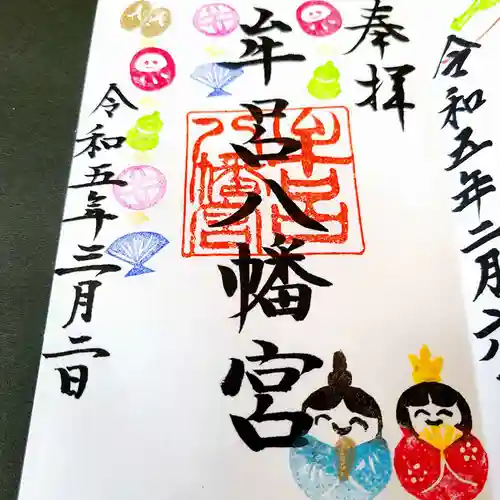 令和五年二月六
奉拝
牟呂八幡宮
牟呂八幡宮
令和五年三月二日